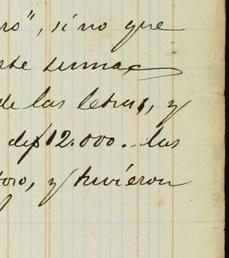 ro", sino que
este sumas
de las letras, y
de $12.000.. las
toro, y tuvieron